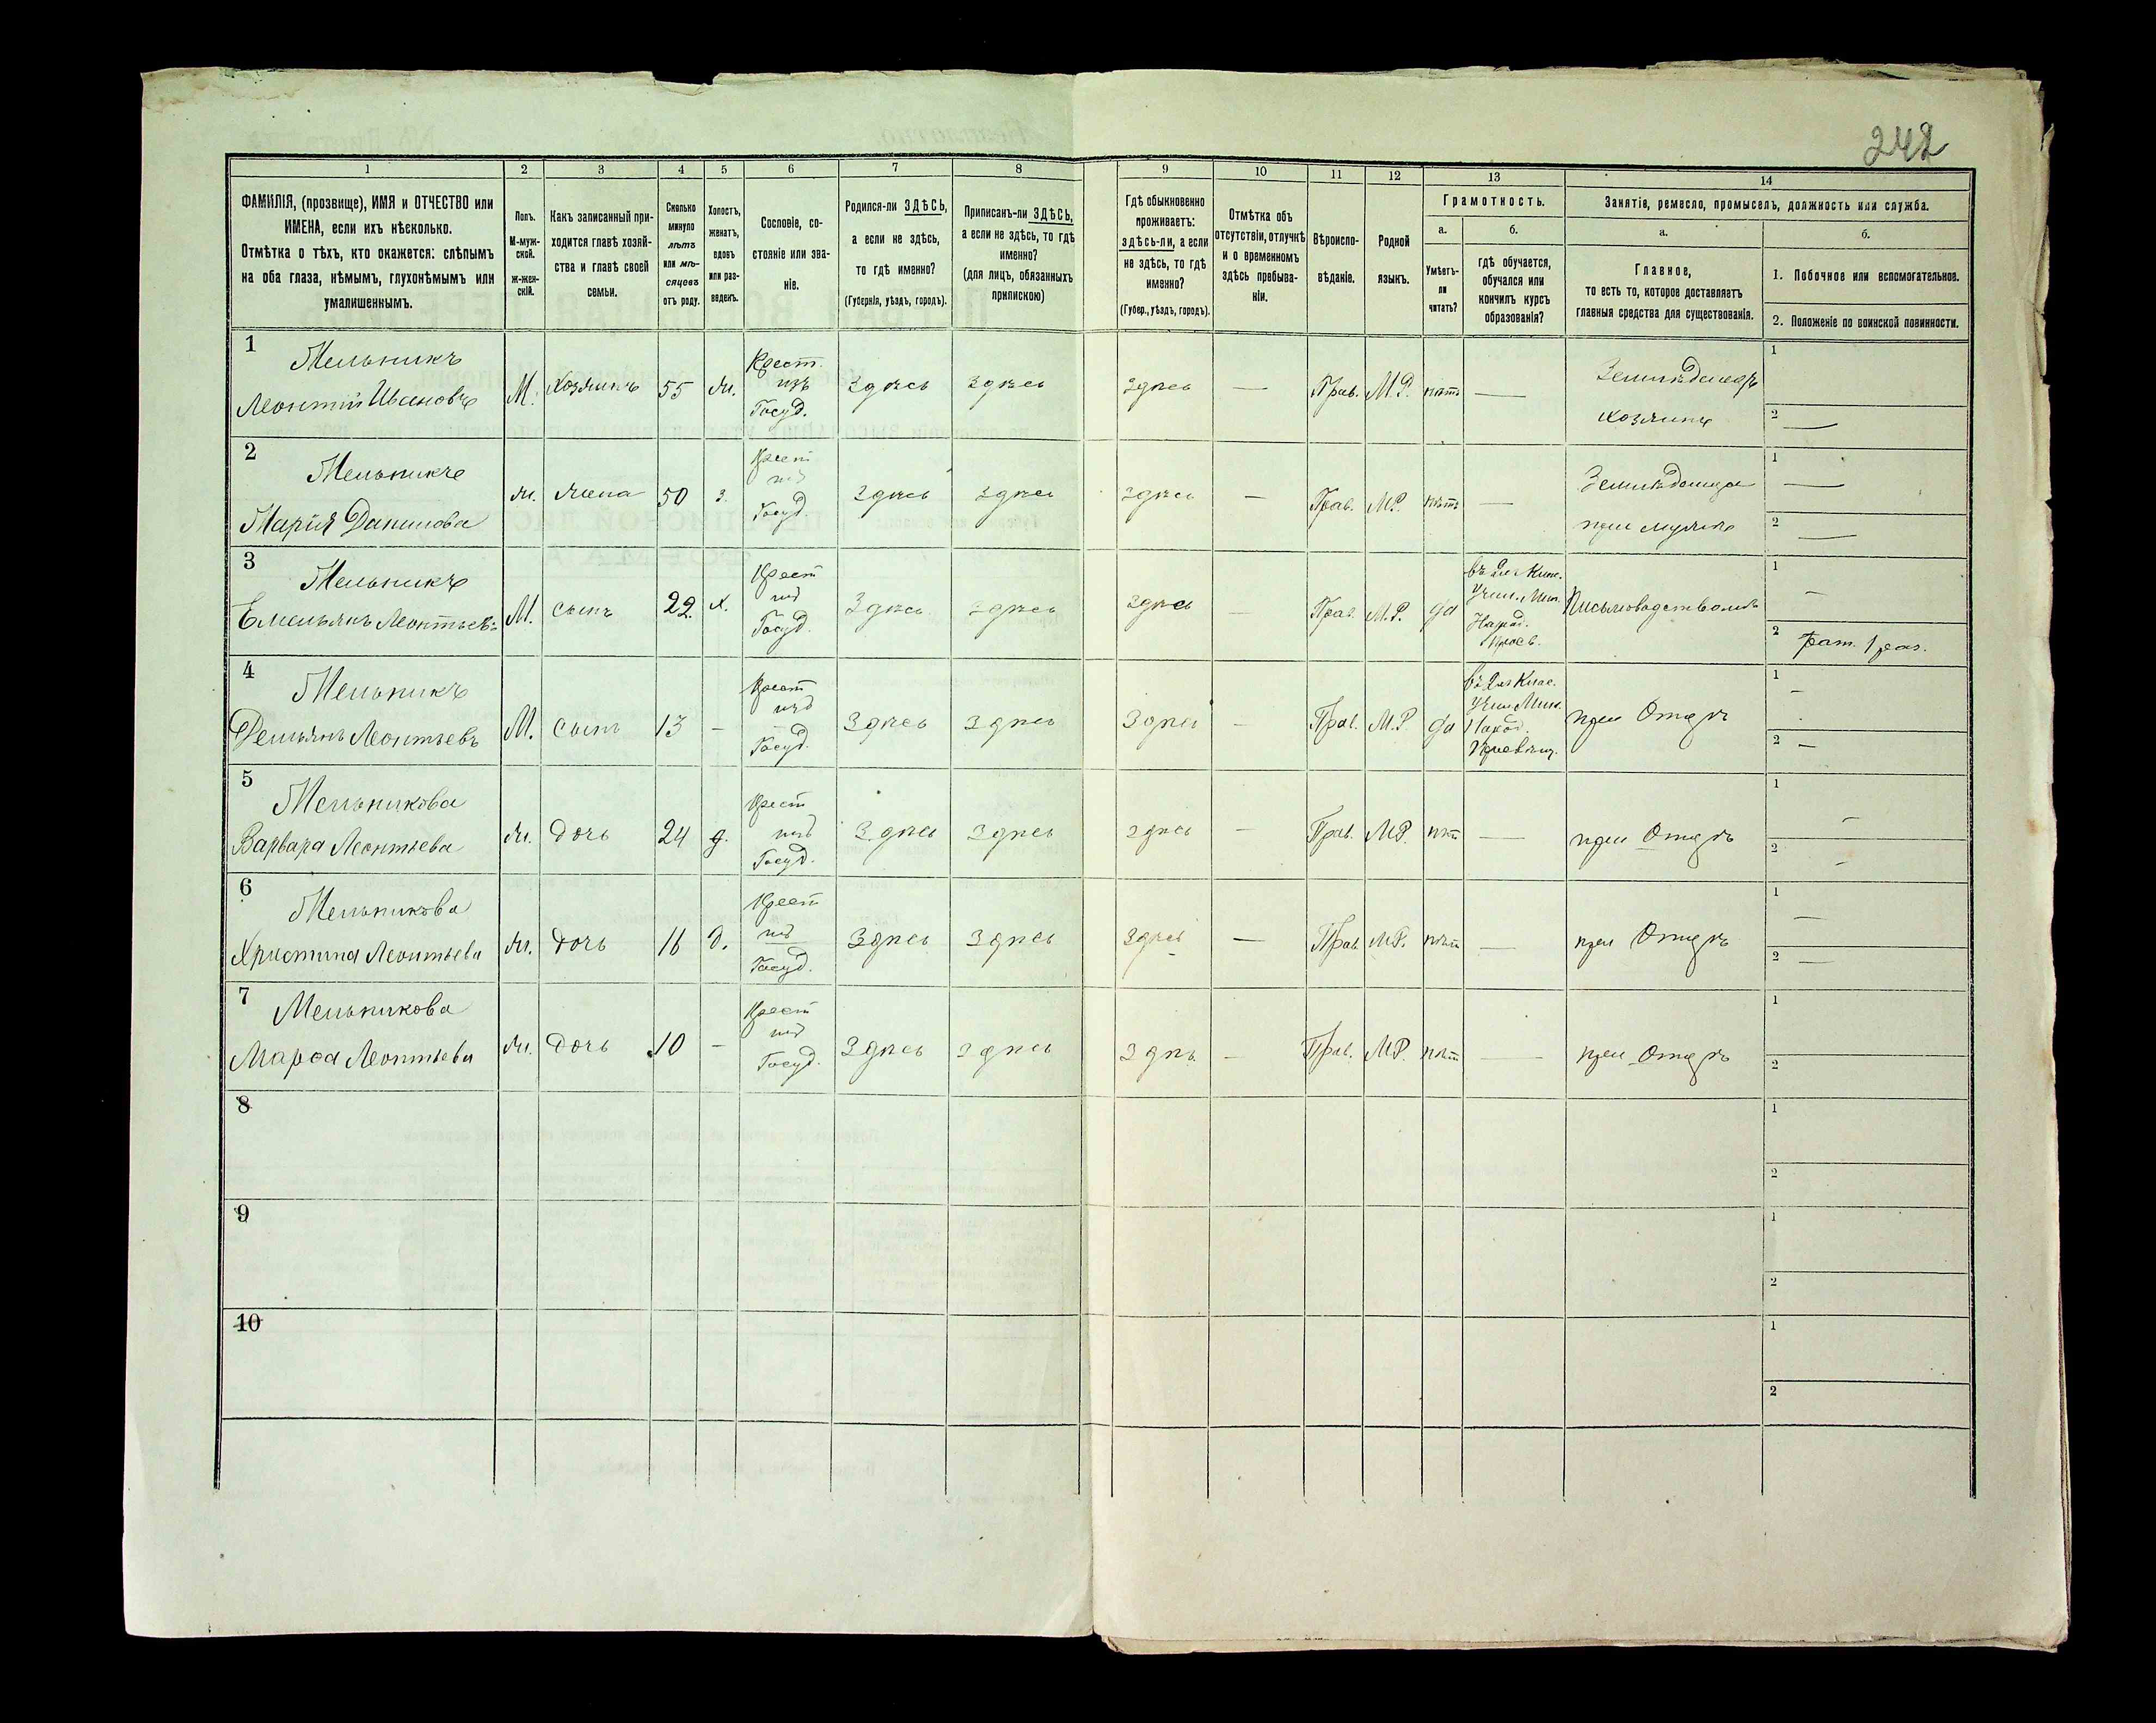 242
1 2 3 4 5 6 7 8 9 10 11 12 13 14
ФАМИЛІЯ, (прозвище), ИМЯ и ОТЧЕСТВО или
ИМЕНА, если ихъ нѣсколько.
Отмѣтка о тѣхъ, кто окажется: слѣпымъ
на оба глаза, нѣмымъ, глухонѣмымъ или
умалишеннымъ.
Полъ.
М-муж-
ской.
ж-жен-
скій.
Какъ записанный при-
ходится главѣ хозяй-
ства и главѣ своей
семьи.
Сколько
минуло
лѣтъ
или мѣ-
сяцевъ
отъ роду.
Холостъ,
женатъ,
вдовъ
или раз-
веденъ.
Сословіе, со-
стояніе или зва-
ніе.
Родился-ли ЗДѢСЬ,
а если не здѣсь,
то гдѣ именно?
(Губернія, уѣздъ, городъ).
Приписанъ-ли ЗДѢСЬ,
а если не здѣсь, то гдѣ
именно?
(для лицъ, обязанныхъ
припискою)
Гдѣ обыкновенно
проживаетъ:
здѣсь-ли, а если
не здѣсь, то гдѣ
именно?
(Губер., уѣздъ, городъ).
Отмѣтка объ
отсутствіи, отлучкѣ
и о временномъ
здѣсь пребыва-
ніи.
Вѣроиспо-
вѣданіе.
Родной
языкъ.
Грамотность.
а.
Умѣетъ-
ли
читать?
б.
гдѣ обучается,
обучался или
кончилъ курсъ
образованія?
Занятіе, ремесло, промыселъ, должность или служба.
а.
Главное,
то есть то, которое доставляетъ
главныя средства для существованія.
б.
1. Побочное или вспомогательное.
2. Положеніе по воинской повинности.
1
Мельникъ
Леонтій Ивановъ
М. Хозяинъ 55 ж.
Крест.
изъ
Госуд.
Здѣсь Здѣсь Здѣсь — Прав. М.Р. нѣтъ —
Земледѣлецъ
хозяинъ
1
2 —
2
Мельникъ
Марія Данилова
ж. жена 50 з.
Крест
изъ
Госуд.
Здѣсь Здѣсь Здѣсь — Прав. М.Р. нѣтъ —
при мужѣ
1 —
2 —
3
Мельникъ
Емельянъ Леонтьевъ
М. сынъ 22 х.
Крест
изъ
Госуд.
Здѣсь Здѣсь Здѣсь — Прав. М.Р. да
Учил. Мин.
Народ.
Просв.
Письмоводствомъ
1 —
2 Рат. 1 раз.
4
Мельникъ
Демьянъ Леонтьевъ
М. сынъ 13 —
Крест
изъ
Госуд.
Здѣсь Здѣсь Здѣсь — Прав. М.Р. да
Учил Мин.
Народ.
при Отцѣ
1 —
2 —
5
Мельникова
Варвара Леонтьева
ж. дочь 24 д.
Крест
изъ
Госуд.
Здѣсь Здѣсь Здѣсь — Прав. М.Р. нѣт —
при Отцѣ
1 —
2 —
6
Мельникова
Христина Леонтьева
ж. дочь 16 д.
Крест
изъ
Госуд.
Здѣсь Здѣсь Здѣсь — Прав. М.Р. нѣт —
при Отцѣ
1 —
2 —
7
Мельникова
Марѳа Леонтьева
ж. дочь 10 —
Крест
изъ
Госуд.
Здѣсь Здѣсь Здѣсь — Прав. М.Р. нѣт —
при Отцѣ
1
2
8
1
2
9
1
2
10
1
2